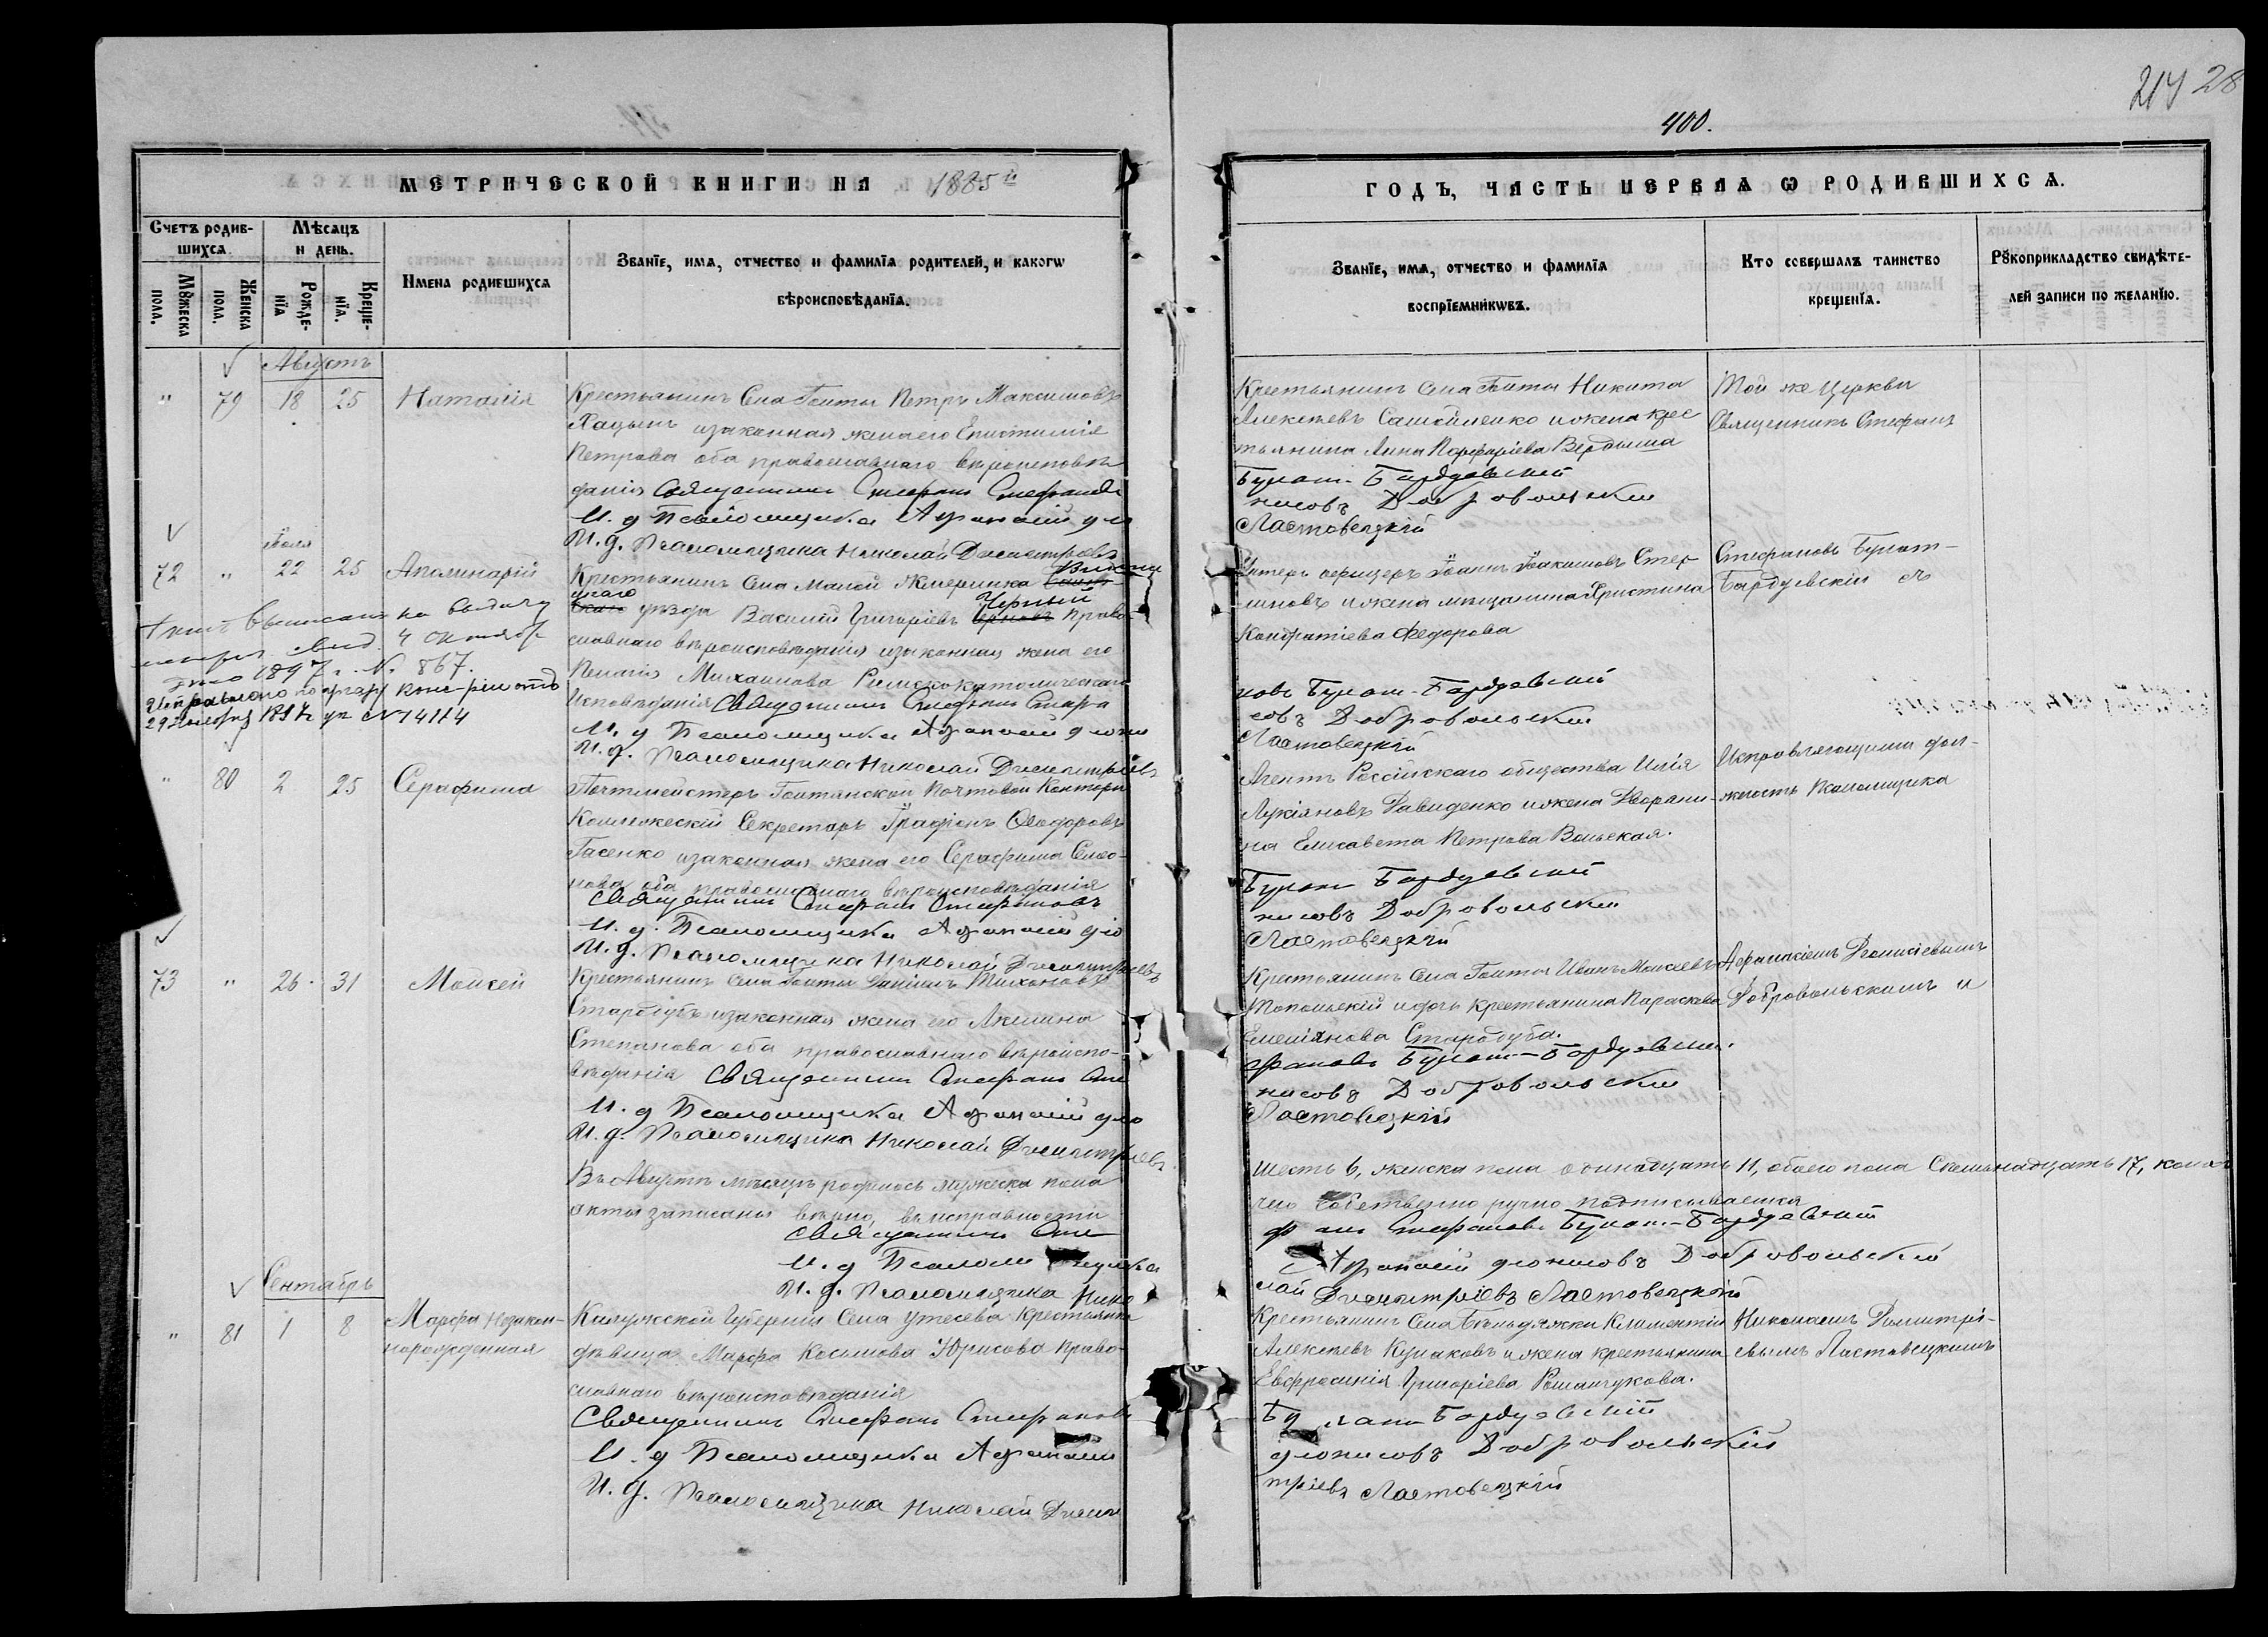 214 28
400.
МЕТРИЧЕСКОЙ КНИГИ НА 1885й
ГОДЪ, ЧАСТЬ ПЕРВАѦ Ѡ РОДИВШИХСѦ.
Счетъ родив-
шихсѧ.
Мꙋжеска
пола.
Женска
пола.
Мѣсѧцъ
и день.
Рожде-
нїѧ
Креще-
нїѧ.
Имена родившихсѧ
Званїе, имѧ, отчество и фамилїѧ родителей, и какогѡ
вѣроисповѣданїѧ.
Званїе, имѧ, отчество и фамилїѧ
воспрїемникѡвъ.
Кто совершалъ таинство
крещенїѧ.
Рꙋкоприкладство свидѣте-
лей записи по желанїю.
Августъ
" 79 18 25 Наталія
Крестьянинъ Села Голты Петръ Максимовъ
Хацынъ и законная жена его Епистимія
Петрова оба православнаго вѣроисповѣ
данія Священникъ Стефанъ Стефано
И. д Псаломщика Афанасій дio
И. д. Псаломщика Николай Дмитріевъ
Крестьянинъ Села Голты Никита
Алексѣевъ Самойленко и жена крес
тьянина Анна Порфиріева
Булат-Бардуевскій
нисовъ Добровольскій
Ластовецкій
Той же Церкви
Священникъ Стефанъ
Іюля
72 " 22 25 Аполинарій
Крестьянинъ Села Малой Жмеринка
уѣзда Василій Григоріевъ Черный право
славнаго вѣроисповѣданія и законная жена его
Михаилова Римскокатолическаго
Исповѣданія Священникъ Стефанъ Стефа
И. д Псаломщика Афанасій дiони
И. д. Псаломщика Николай Дмитріевъ
выписанъ на выдачу
свид. 4 Октября
1897 г. №. 867.
29 1897 г № 14114
Унтеръ офицеръ Іоаннъ Іоакимовъ
и жена мѣщанина Христина
Кондратіева Федорова
новъ Булат-Бардуевскій
совъ Добровольскій
Ластовецкій
Стефановъ Булат-
Бардуевскій съ
" 80 2 25 Серафима
Почтмейстеръ Голтянской Почтовой Конторы
Коллежескій Секретарь Ѳеодоровъ
и законная жена его Серафима Семо-
нова оба православнаго вѣроисповѣданія
Священникъ Стефанъ Стефановъ
И. д. Псаломщика Афанасій діо
И. д. Псаломщика Николай Дмитріевъ
Агентъ Россійскаго общества Илія
Лукіяновъ Давиденко и жена Дворяни-
на Елисавета Петрова Вольская.
Булат Бардуевскій
нисовъ Добровольскій
Ластовецкій
Исправляющими дол-
жность Псаломщика
73 " 26. 31 Моисей
Крестьянинъ Села Голты Даніилъ Тихоновъ
Стародубъ и законная жена его Акилина
Степанова оба православнаго вѣроиспо-
вѣданія Священникъ Стефанъ Сте
И. д Псаломщика Афанасій діо
И. д. Псаломщика Николай Дмитріевъ
Крестьянинъ Села Голты Иванъ Моисеевъ
Топольскій и дочь крестьянина Параскева
Емеліянова Стародуба.
фановъ Булат-Бардуевскій.
нисовъ Добровольскій
Ластовецкій
Афанасіемъ Діонисіевымъ
Добровольскимъ и
Въ Августѣ мѣсяцѣ родилось мужеска пола
шесть 6, женска пола одинадцать 11, обоего пола Семьнадцать 17,
акты записаны вѣрно, въ исправности
чего собственно ручно подписываемся
Священникъ Сте
фанъ Стефановъ Булат-Бардуевскій
И. д Псаломщика
Афанасій діонисовъ Добровольскій
И. д. Псаломщика Нико
лай Дмитріевъ Ластовецкій
Сентябрь
" 81 1 8 Марфа Незакон-
норожденная
Калужской Губерніи Села Утесева крестьянка
дѣвица Марфа Косимова Юрисова право-
славнаго вѣроисповѣданія
Священникъ Стефанъ Стефановъ
И. д Псаломщика Афанасій
И. д. Псаломщика Николай Дими
Крестьянинъ Села Климентій
Алексѣевъ Кулаковъ и жена крестьянина
Евфросинія Григоріева Романчукова.
Булат Бардуевскій
діонисовъ Добровольскій
тріевъ Ластовецкій
Николаемъ Димитрі-
евымъ Ластовецкимъ